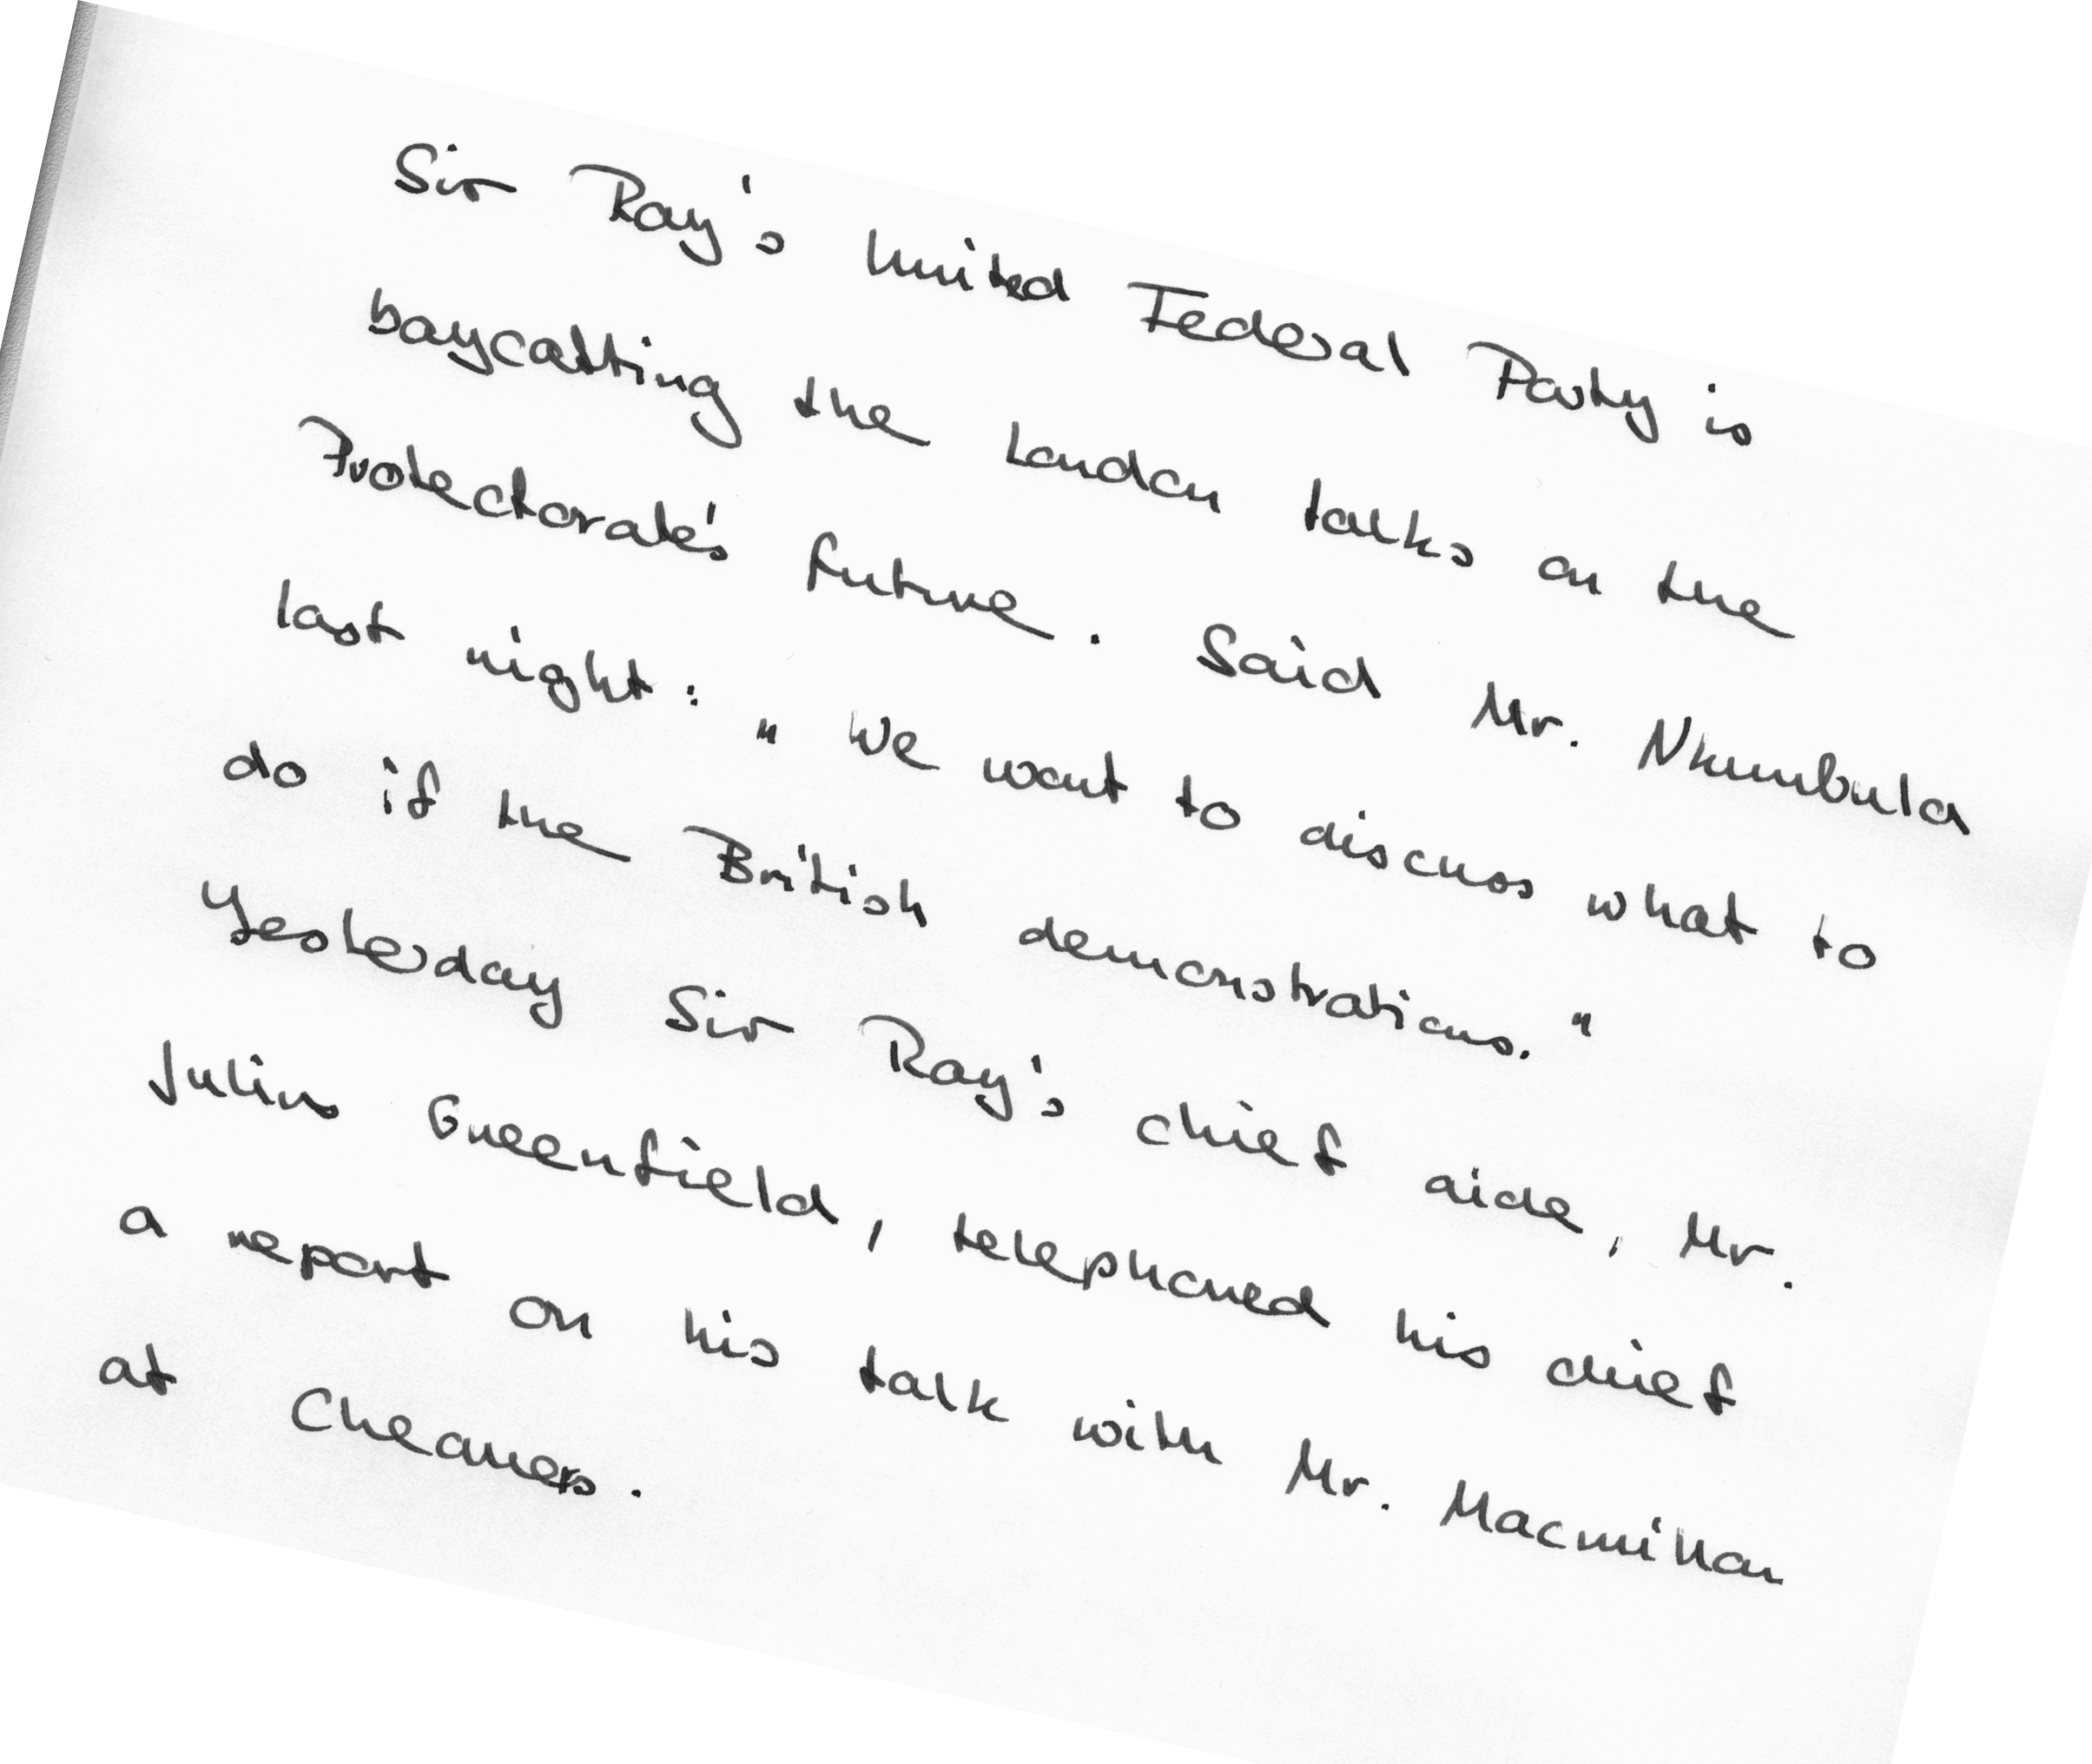 Sir Roy's United Federal Party is
boycotting the London talks on the
Protectorate's future. Said Mr. Nkumbula
last night: "We want to discuss what to
do if the British demonstrations."
Yesterday Sir Roy's chief aide, Mr.
Julius Greenfield, telephoned his chief
a report on his talk with Mr. Macmillan
at Cheaners.